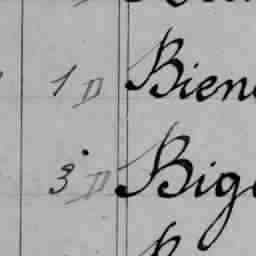 1 D Bien
3 D Big